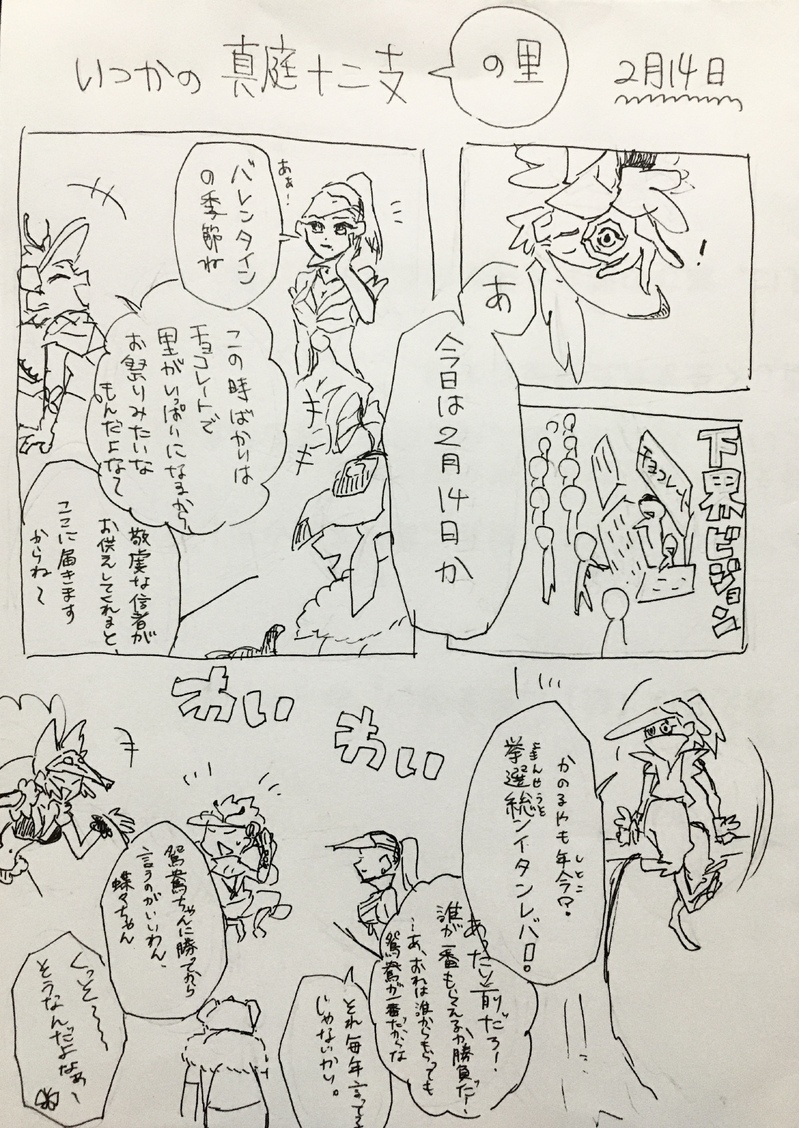 いつかの 真庭十二支 の里 2月14日
あ
!
今日は2月14日か
下界ビジョン
チョコレート
あぁ!
バレンタイン
の季節ね
この時ばかりは
チョコレートで
里がいっぱいになるから
お祭りみたいな
もんだよな〜
敬虔な信者が
お供えしてくれると
ここに届きます
からね〜
わいわい
かのるやも年今?。
しとこ
挙選総ンイタンレバ
あったり前だろー!
誰が一番もらえるか勝負だー!
…あ、おれは誰からもらっても
鴛鴦が一番だからな
それ毎年言ってる
じゃないかい。
鴛鴦ちゃんに勝ってから
言うのがいいわん、
蝶々ちゃん
くっそ〜〜
そうなんだよなぁ〜